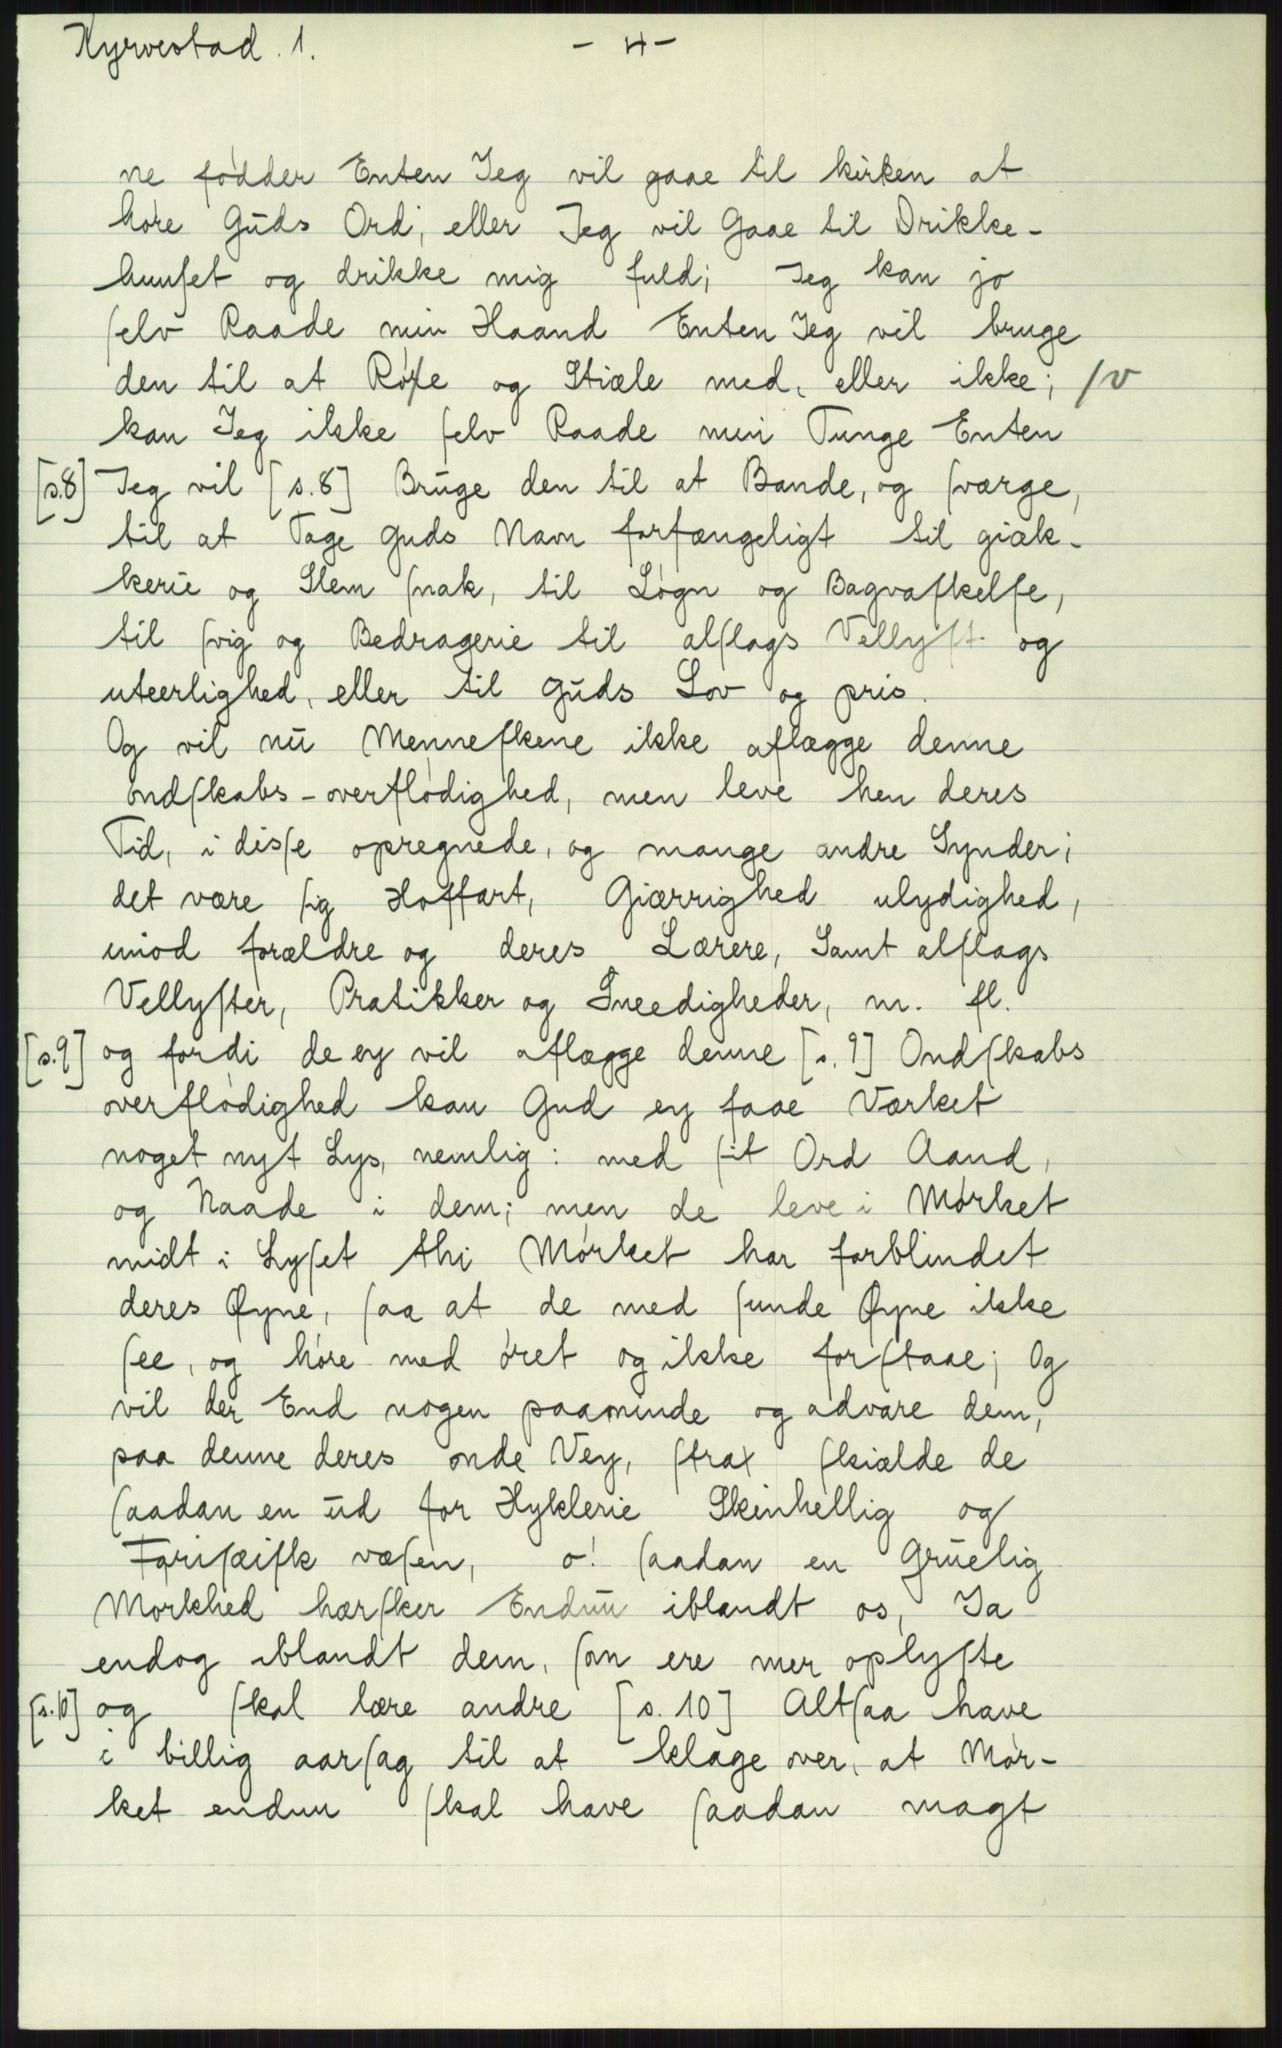 Kyrvestad. 1. - 4 -
ne fødder Enten Jeg vil gaae til kirken at
høre Gūds Ord, eller Jeg vil Gaae til Drikke-
huuſet og drikke mig fuld; Jeg kan jo
ſelv Raade min Haand Enten Jeg vil bruge
den til at Røſe og Stiæle med, eller ikke; /v
kan Jeg ikke ſelv Raade min Tunge Enten
[s.8] Jeg vil [s.8] Brūge den til at Bande, og ſværge,
til at Tage Guds Navn forfængeligt til giæk-
kerie og Slem ſnak, til Løgn og Bagvaſkelſe,
til ſvig og Bedragerie til alſlags Vellyſt og
uteerlighed, eller til Gūds Lov og pris.
Og vil nū Menneſkene ikke aflægge denne
ondſkabs-overflødighed, men leve hen deres
Tid, i disſe opregnede, og mange andre Synder;
det være ſig Hoffart, Giærrighed ulydighed,
imod forældre og deres Lærere, Samt alſlags
Vellyſter, Pratikker og Sneedigheder, m. fl.
[s.9] og fordi de ey vil aflægge denne [s. 9] Ondſkabs
overflødighed kan Gud ey faae Værket
noget nyt Lys, nemlig: med ſit Ord Aand,
og Naade i dem; men de leve i Mørket
midt i Lyſet thi Mørket har forblindet
deres Øyne, ſaa at de med ſunde Øyne ikke
ſee, og høre med øret og ikke forſtaae; Og
vil der End nogen paaminde og advare dem,
paa denne deres onde Vey, ſtrax ſkiælde de
ſaadan en ūd for Hyklerie Skinhellig og
Fariſæiſk væſen, o! ſaadan en Grūelig
Mørkhed hærſker Endnū iblandt os, Ja
endog iblandt dem, ſom ere mer oplyſte
[s.10] og ſkal lære andre [s. 10] Altſaa have
i billig aarſag til at klage over, at Mør-
ket endnu ſkal have ſaadan magt